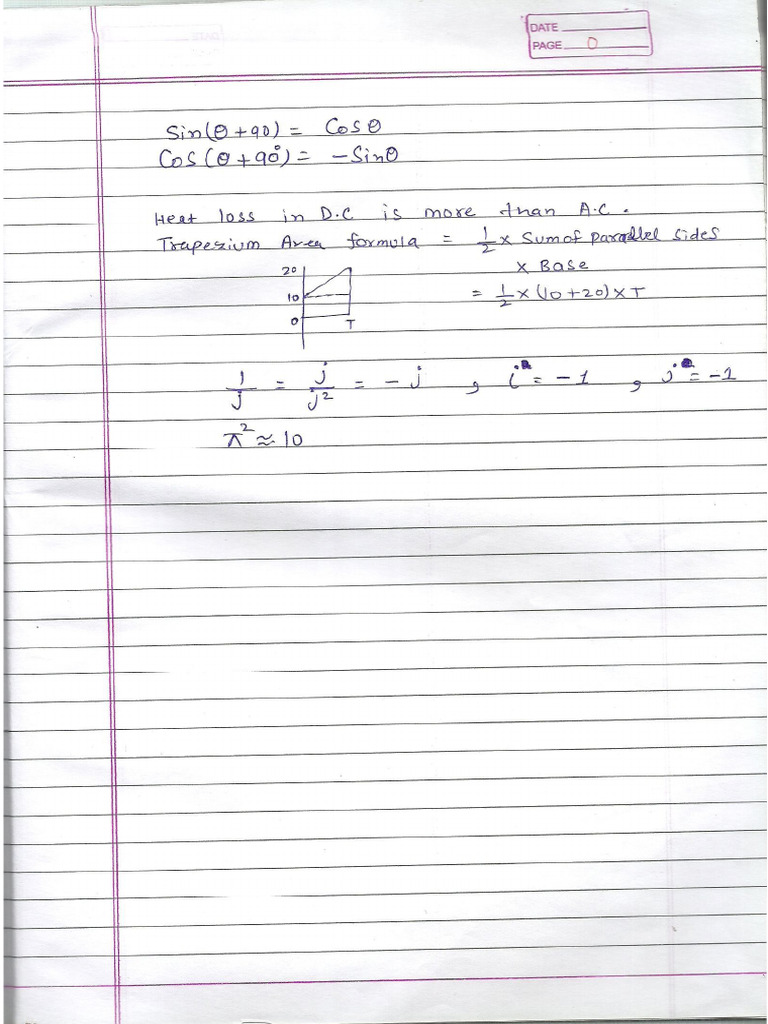 DATE
PAGE 0
Sin(θ+90) = Cosθ
Cos(θ+90°) = -Sinθ
Heat loss in D.C is more than A.C.
Trapezium Area formula = 1/2 × Sum of parallel sides
× Base
= 1/2 × (10+20) × T
20
10
0
T
1/j = j/j² = -j , i² = -1 , j² = -1
π² ≈ 10